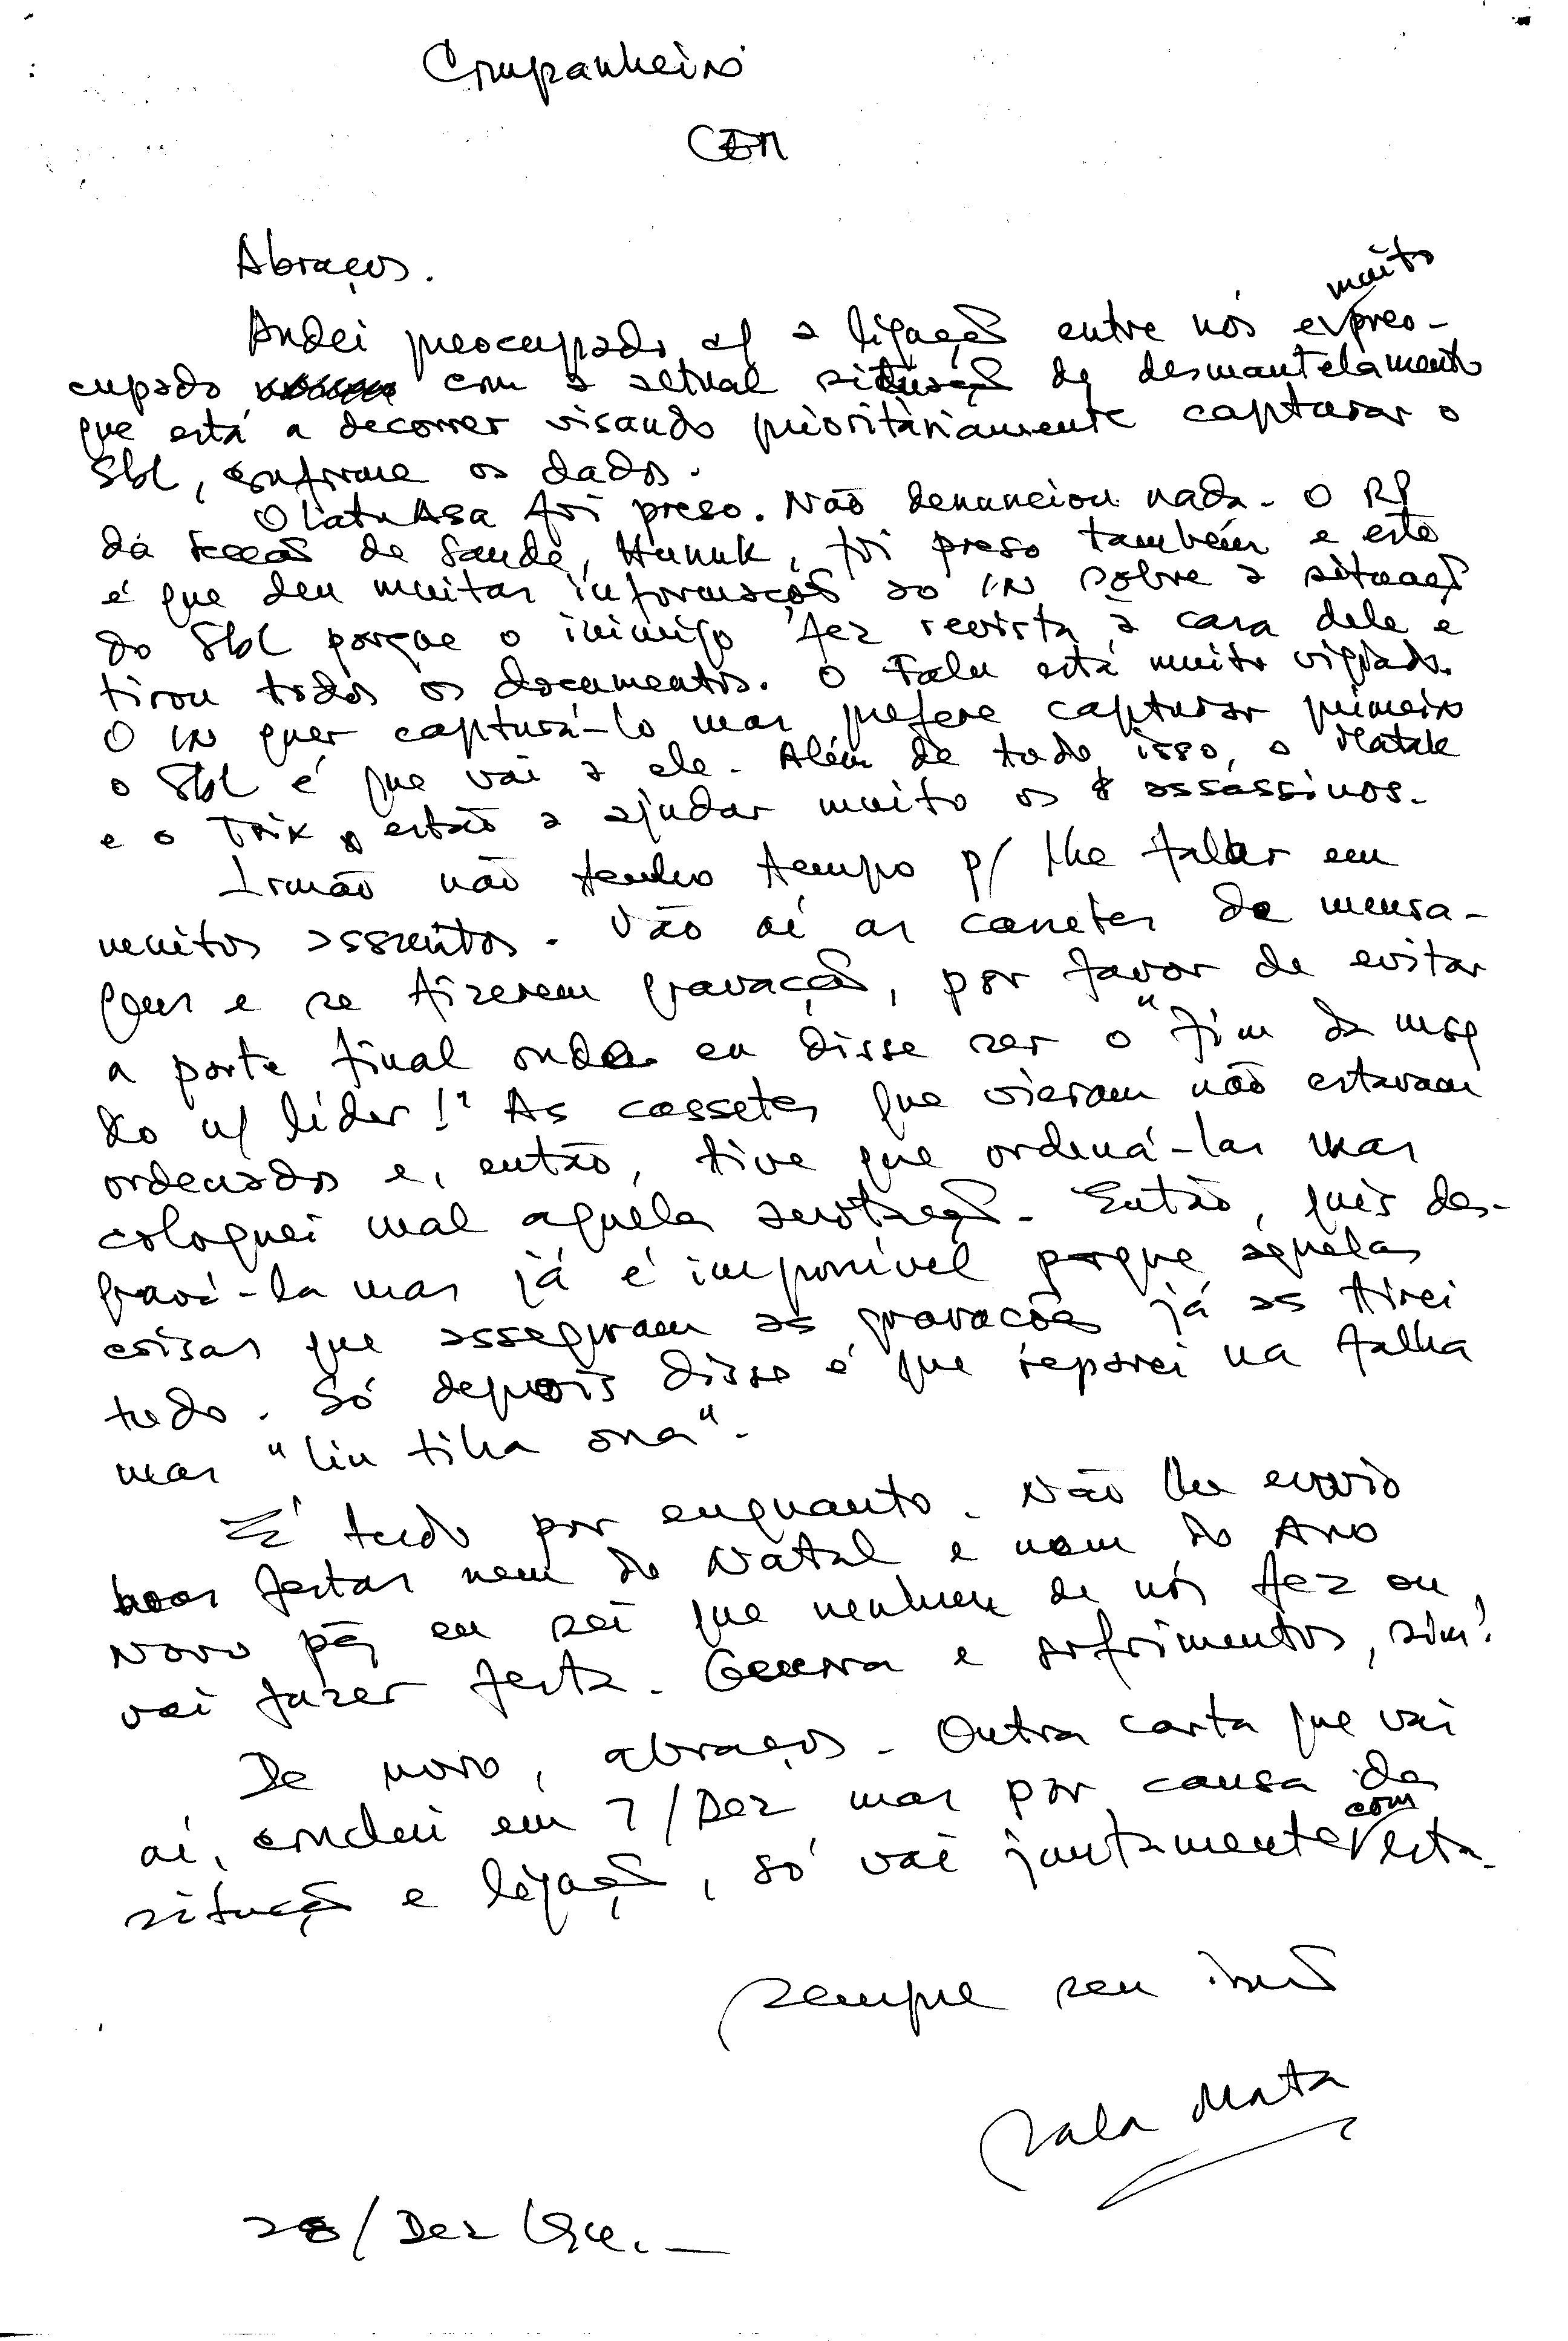 Companheiro
CEM
Abraços.
Andei preocupado c/ a ligação entre nós e muito preo-
cupado com a actual situação de desmantelamento
que está a decorrer visando prioritàriamente capturar o
Sbl, conforme os dados.
O Latu Asa foi preso. Não denunciou nada. O RP
da secção de Saude, Hunuk, foi preso também e este
é que deu muitas informações ao IN sobre a situação
do Sbl porque o inimigo fez revista à casa dele e
tirou todos os documentos. O Falu está muito vigiado.
O IN quer capturá-lo mas prefere capturar primeiro
o Sbl é que vai a ele. Além de tudo isso, o
e o Trix estão a ajudar muito os assassinos.
Irmão não tenho tempo p/ lhe falar em
muitos assuntos. Vão aí as cassetes de mensa-
gem e se fizerem gravação, por favor de evitar
a parte final onde eu disse ser o "fim da msg
do n/ líder!" As cassetes que vieram não estavam
ordenados e, então, tive que ordená-las mas
coloquei mal aquela anotação. Então, quis des-
gravá-la mas já é impossível porque aquelas
coisas que asseguram as gravações já as tirei
tudo. Só depois disso é que reparei na falha
mas "liu tiha ona".
É tudo por enquanto. Não lhe envio
boas festas nem de Natal e nem do Ano
Novo pq eu sei que nenhum de nós fez ou
vai fazer festa. Guerra e sofrimentos, sim!
De novo, abraços. Outra carta que vai
aí, conclui em 7/Dez mas por causa da
situação e ligação, só vai juntamente com esta.
Sempre seu irmão
Mata
28/Dez